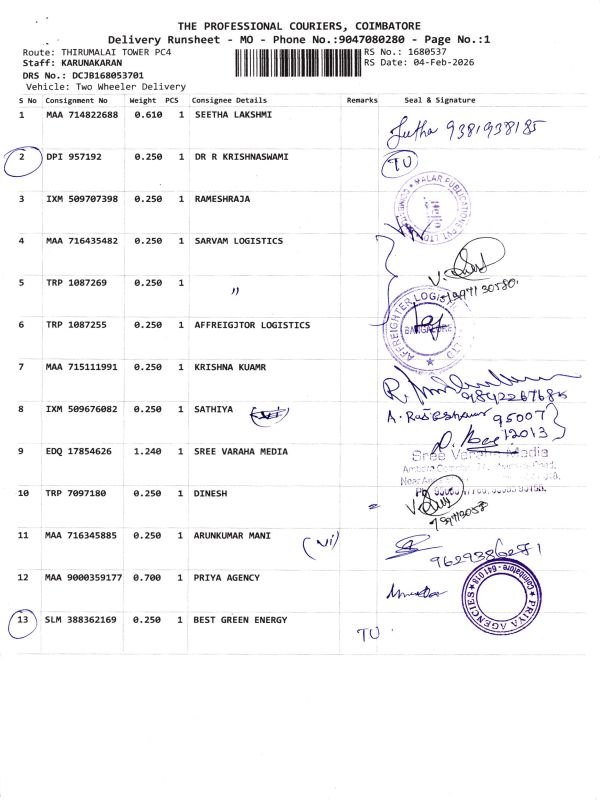 THE PROFESSIONAL COURIERS, COIMBATORE
Delivery Runsheet - MO - Phone No.:9047080280 - Page No.:1
Route: THIRUMALAI TOWER PC4 RS No.: 1680537
Staff: KARUNAKARAN RS Date: 04-Feb-2026
DRS No.: DCJB168053701
Vehicle: Two Wheeler Delivery
S No Consignment No Weight PCS Consignee Details Remarks Seal & Signature
1 MAA 714822688 0.610 1 SEETHA LAKSHMI
9381938185
2 DPI 957192 0.250 1 DR R KRISHNASWAMI TU
3 IXM 509707398 0.250 1 RAMESHRAJA
MALAR PUBLICATIONS PVT LTD
4 MAA 716435482 0.250 1 SARVAM LOGISTICS
5 TRP 1087269 0.250 1 "
6 TRP 1087255 0.250 1 AFFREIGJTOR LOGISTICS
BANGALORE
7 MAA 715111991 0.250 1 KRISHNA KUAMR
8 IXM 509676082 0.250 1 SATHIYA
95007
12013
9 EDQ 17854626 1.240 1 SREE VARAHA MEDIA
Sree Varaha Media
10 TRP 7097180 0.250 1 DINESH =
11 MAA 716345885 0.250 1 ARUNKUMAR MANI (Ni)
12 MAA 9000359177 0.700 1 PRIYA AGENCY
PRIYA AGENCIES
13 SLM 388362169 0.250 1 BEST GREEN ENERGY
TU